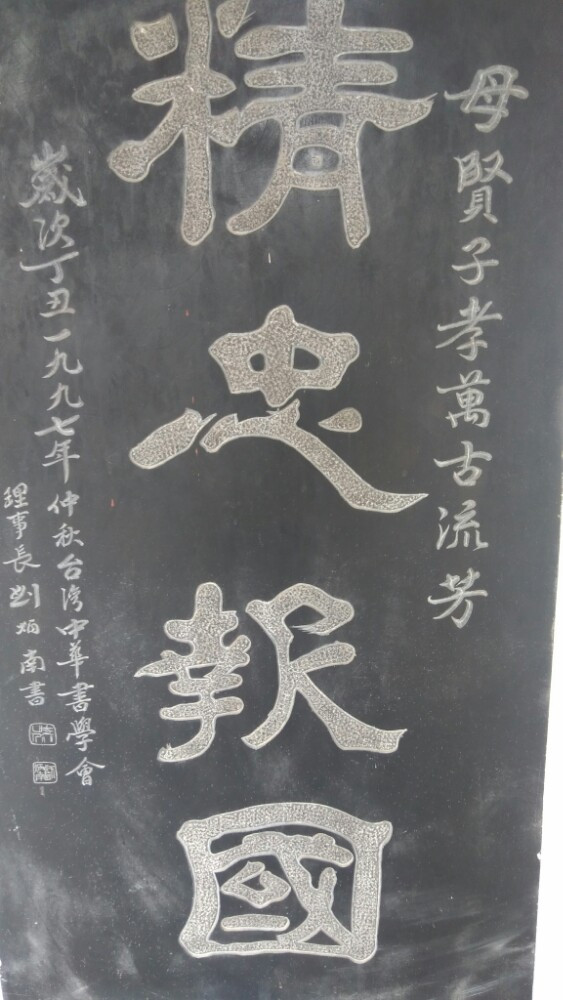 母賢子孝萬古流芳
精忠報國
歲次丁丑一九九七年仲秋台灣中華書學會
理事長劉炳南書